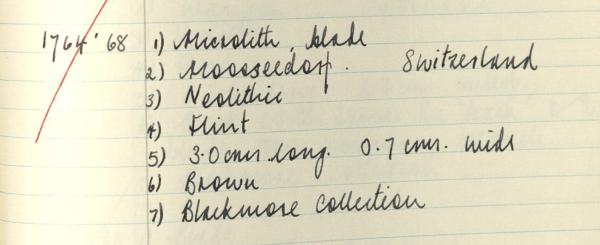 1764'68 1) Microlith, blade
2) Moosseedorf. Switzerland
3) Neolithic
4) Flint
5) 3.0 cms long. 0.7 cms. wide
6) Brown
7) Blackmore Collection